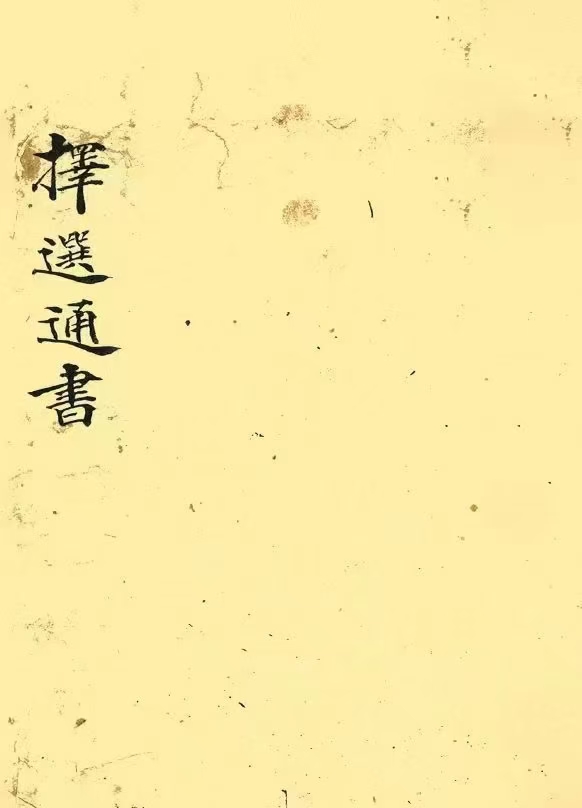 擇選通書